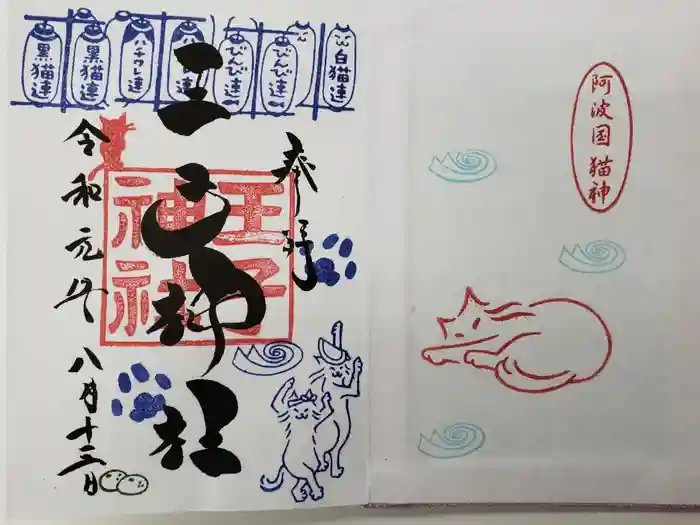 黒猫連
黒猫連
ハチワレ連
連
びんび連
びんび連
白猫連
奉拝
王子神社
王子
神社
令和元年八月十三日
阿波国猫神